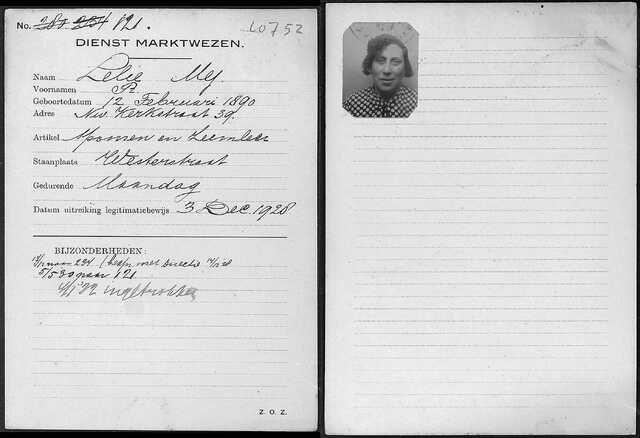 No. 280 254 121.
10752
DIENST MARKTWEZEN.
Naam Lelie Mej
Voornamen R.
Geboortedatum 12 Februari 1890
Adres Nw. Kerkstraat 39.
Artikel Sponsen en Zeemleer
Staanplaats Westerstraat
Gedurende Maandag
Datum uitreiking legitimatiebewijs 3 Dec. 1928
BIJZONDERHEDEN:
naar 234 met Directie
5/5 30 naar 121
'32 ingetrokken
Z. O. Z.